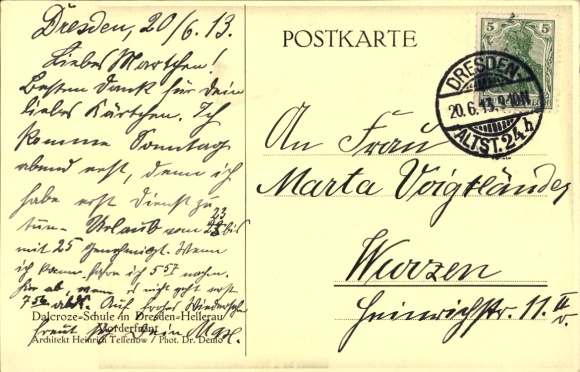 Dresden, 20/6.13.
Liebes Martchen!
Besten Dank für Dein
liebes Kärtchen. Ich
komme Sonntag
abend erst, denn ich
habe erst Dienst zu
tun. Urlaub vom 23 bis
mit 25 genehmigt. Wenn
ich kann, fahre ich 5 57 nachm.
hier ab, wenn es nicht geht erst
7 56 abds. Auf frohes Wiedersehn
freut sich Dein Max.
Dalcroze-Schule in Dresden-Hellerau
Vorderfront
Architekt Heinrich Tessenow / Phot. Dr. Demo
POSTKARTE
5 5
DRESDEN-
20.6.13. 9-10N
ALTST. 24 h
An Frau
Marta Voigtländer
Wurzen
Heinrichstr. 11. II